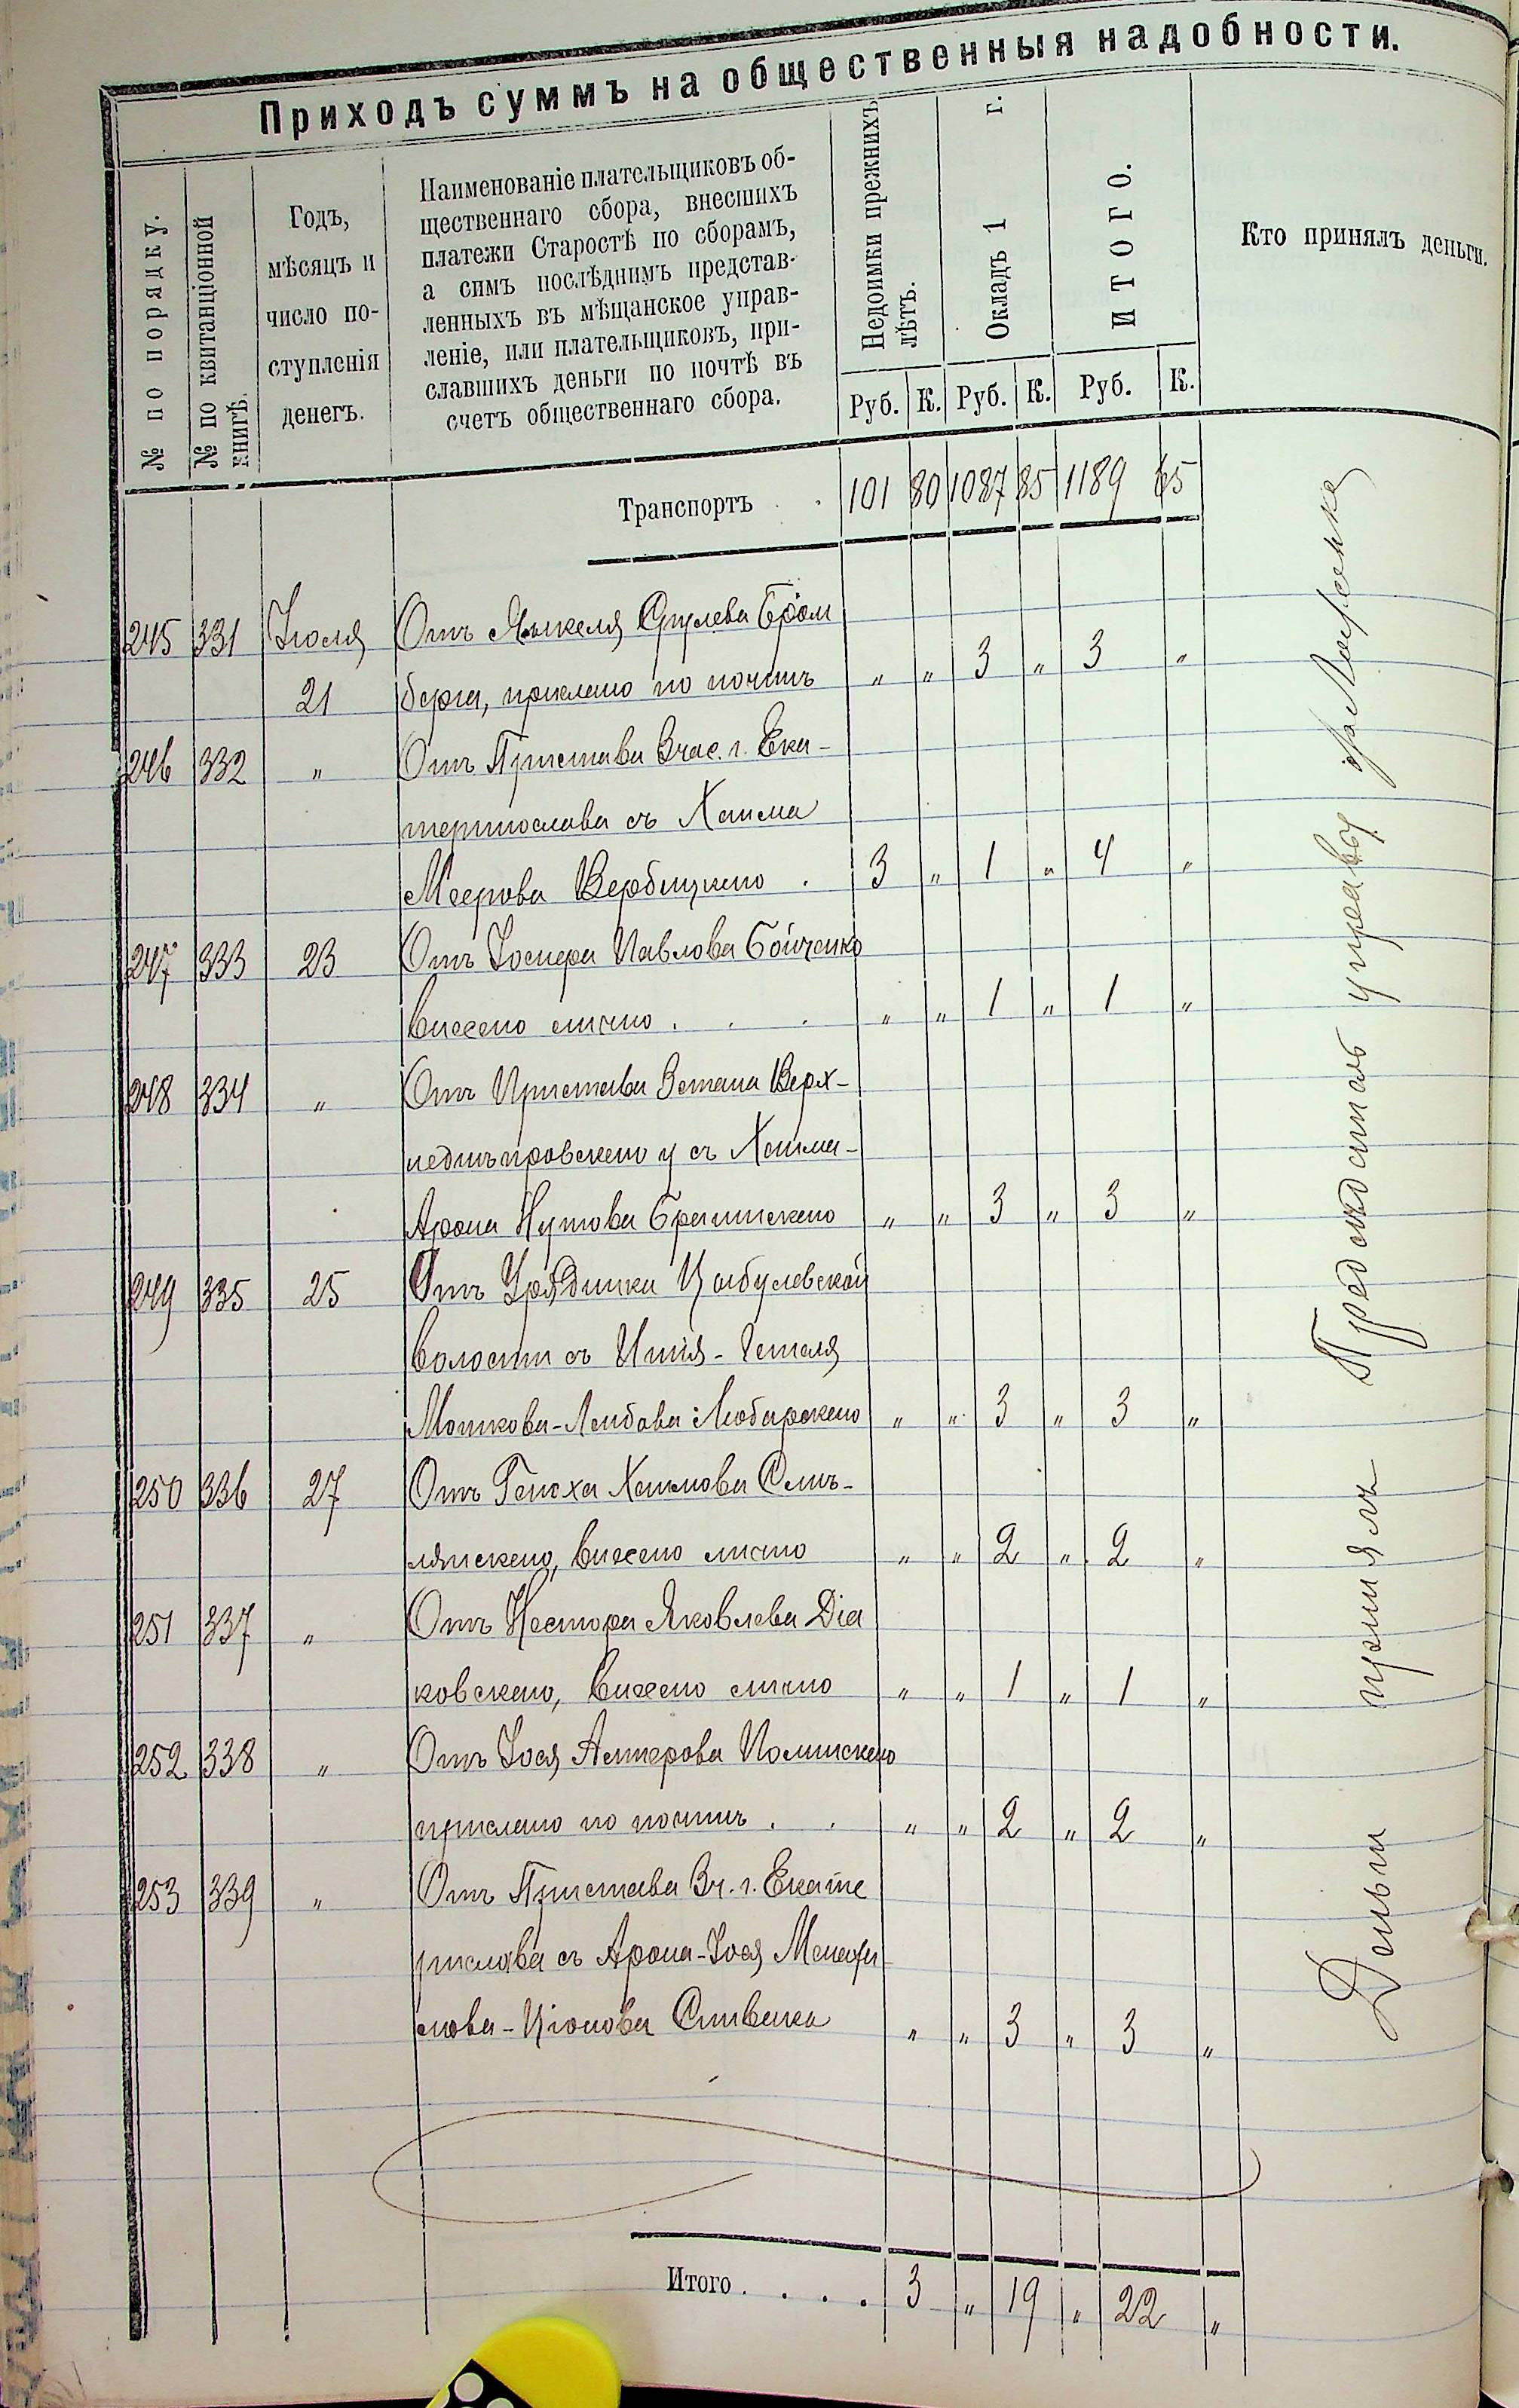 Приходъ суммъ на общественныя надобности.
№ по порядку.
№ по квитанціонной
книгѣ.
Годъ,
мѣсяцъ и
число по-
ступленія
денегъ.
Наименованіе плательщиковъ об-
щественнаго сбора, внесшихъ
платежи Старостѣ по сборамъ,
а симъ послѣднимъ представ-
ленныхъ въ мѣщанское управ-
леніе, или плательщиковъ, при-
славшихъ деньги по почтѣ въ
счетъ общественнаго сбора.
Недоимки прежнихъ
лѣтъ.
Окладъ 1 г.
ИТОГО.
Кто принялъ деньги.
Руб. К. Руб. К. Руб. К.
Транспортъ . . 101 80 1087 85 1189 65
245 331 Іюля Отъ Янкеля Срулева Бром
21 берга, прислано по почтѣ „ „ 3 „ 3 „
246 332 „ Отъ Пристава 3 час. г. Ека-
теринослава съ Хаима
Меерова Вербицкаго . 3 „ 1 „ 4 „
247 333 23 Отъ Іосифа Павлова Бойченко
внесено лично . . . „ „ 1 „ 1 „
248 334 „ Отъ Пристава 3 стана Верх-
неднѣпровскаго у съ Хаима-
Арона Нутова Брагинскаго „ „ 3 „ 3 „
249 335 25 Отъ Урядника Цыбулевской
волости съ
Мошкова-Лейбова Любарскаго „ „ 3 „ 3 „
250 336 27 Отъ Геноха Хаимова Смѣ-
лянскаго, внесено лично „ „ 2 „ 2 „
251 337 „ Отъ Нестора Яковлева Dia
ковскаго, внесено лично „ „ 1 „ 1 „
252 338 „ Отъ Іося Алтерова Полинскаго
прислано по почтѣ . . „ „ 2 „ 2 „
253 339 „ Отъ Пристава 3 ч. г. Екате
ринслава съ Арона-Іося
Сливака „ „ 3 „ 3 „
Итого . . . . 3 „ 19 „ 22 „
Деньги принялъ Предсѣдатель управы